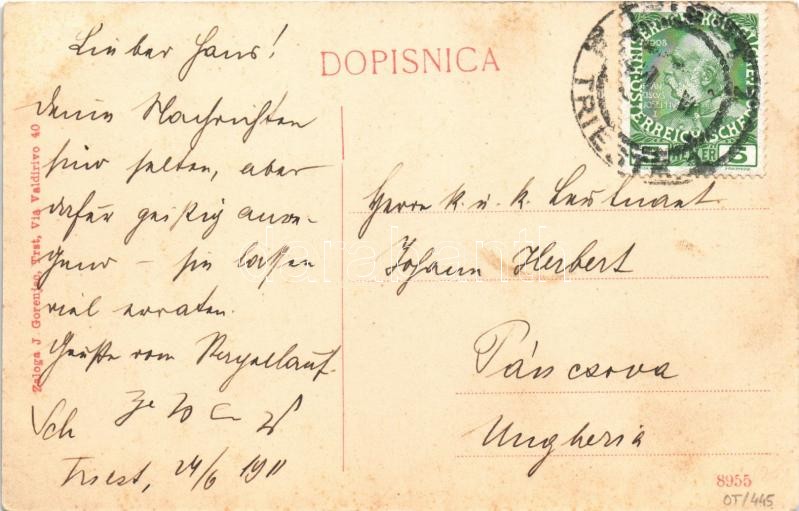 Lieber Hans!
Deine Nachrichten
sind selten, aber
dafür geistig anre-
gend – sie lassen
viel erraten.
Grüße vom
Triest, 24/6 1911
DOPISNICA
Herrn k. u. k. Leutnant
Johann Herbert
Páncsova
Ungheria
TRIEST
5 HELLER 5
Zaloga J. Gorenjec, Trst, Via Valdirivo 40
8955
OT/445
darabanth